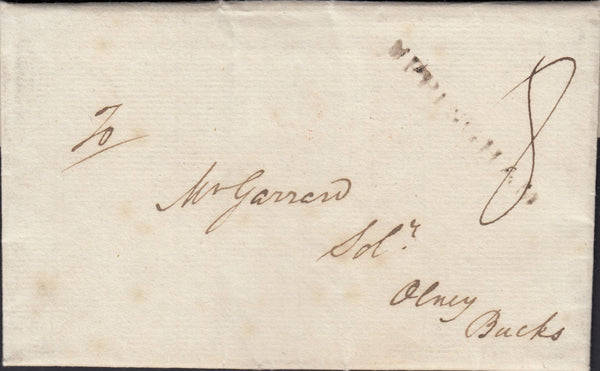 UPPINGHAM
8
To
Mr Garrard
Solr.
Olney
Bucks